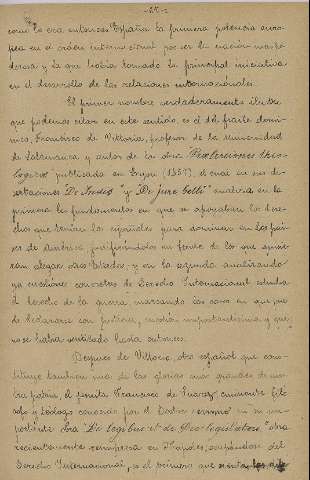 como lo era entonces España la primera potencia euro-
pea en el orden internacional por ser la nación mas po-
derosa y la que habia tomado la principal iniciativa
en el desarrollo de las relaciones internacionales.
El primer nombre verdaderamente ilustre
que podemos citar en este sentido, es el del fraile domi-
nico, Francisco de Vittoria, profesor de la Universidad
de Salamanca y autor de la obra "Prelectiones theo-
logicas" publicada en Lyon (1557), el cual en sus di-
sertaciones "De Indis" y "De jure belli" analiza en la
primera los fundamentos en que se apoyaban los dere-
chos que tenian los españoles para dominar en los pai-
ses de America justificandolos en frente de los que
alegar otros Estados, y en la segunda analizando
ya cuestiones concretas de Derecho Internacional estudia
el derecho de la guerra marcando los casos en que pue-
de declararse con justicia, cuestión importantisima y que
no se habia ventilado hasta entonces.
Despues de Vittoria, otro español que cons-
tituye tambien una de las glorias mas grandes de nues-
tra patria, el jesuita Francisco de Suarez eminente filó-
sofo y teólogo conocido por el Doctor eximio en su im-
portante obra "De legibus et de Deo legislatore" obra
recientemente reimpresa en Napoles, ocupándose del
Derecho Internacional, es el primero que